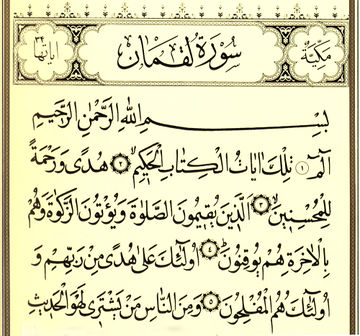 مكية سورة لقمان آياتها ٣٤
بِسْمِ اللهِ الرَّحْمٰنِ الرَّحِيمِ
الٓمٓ ﴿١﴾ تِلْكَ اٰيَاتُ الْكِتَابِ الْحَكِيمِ ﴿٢﴾ هُدًى وَرَحْمَةً
لِلْمُحْسِنِينَ ﴿٣﴾ الَّذِينَ يُقِيمُونَ الصَّلٰوةَ وَيُؤْتُونَ الزَّكٰوةَ وَهُمْ
بِالْاٰخِرَةِ هُمْ يُوقِنُونَ ﴿٤﴾ اُولٰئِكَ عَلٰى هُدًى مِنْ رَبِّهِمْ وَ
اُولٰئِكَ هُمُ الْمُفْلِحُونَ ﴿٥﴾ وَمِنَ النَّاسِ مَنْ يَشْتَرِي لَهْوَ الْحَدِيثِ